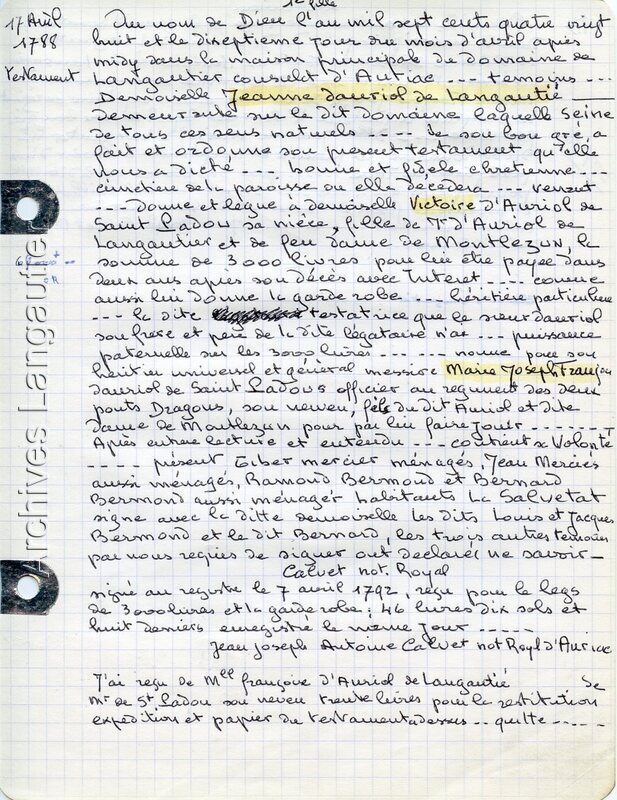 17 Avril
1788
Testament
Au nom de Dieu l'an mil sept cents quatre vingt
huit et le dixseptieme jour du mois d'avril après
midy dans la maison principale du domaine de
Langautier consulat d'Auriac --- temoins ---
Demoiselle Jeanne dauriol de Langautié
demeurante sur le dit domaine laquelle seine
de tous ces sens naturels ----- de son bon gré, a
fait et ordonne son present testament qu'elle
nous a dicté --- bonne et fidele chretienne ---
cimetière de la paroisse ou elle décedera --- veneut
--- donne et lègue à demoiselle Victoire d'Auriol de
Saint Ladou sa nièce, fille de Mr d'Auriol de
Langautier et de feu dame de Montlezun, la
somme de 3000 livres pour lui être payée dans
deux ans après son décès avec Interet ---- comme
aussi lui donne la garde robe ---- héritière particuliere
--- la dite testatrice que le sieur dauriol
son frere et père de la dite légataire n'ai --- puissance
paternelle sur les 3000 livres ---- nomme pour son
heritier universel et général messire Marie Joseph françois
dauriol de Saint Ladous officier au regiment des deux
ponts Dragons, son neveu, fils du dit Auriol et dite
dame de Montlezun pour par lui faire jouir -------
Après entiere lecture et entendu --- contient sa Volonté
---- présent mercier ménagés, Jean Mercier
aussi ménagés, Ramond Bermond et Bernard
Bermond aussi ménager habitants La Salvetat
signe avec la ditte demoiselle les dits Louis et Jacques
Bermond et le dit Bernard, les trois autres temoins
par nous requies de signer ont declarés ne savoir -
Calvet not. Royal
signé au registre le 7 avril 1792, reçu pour le legs
de 3000 livres et la garde robe, 46 livres dix sols et
huit deniers enregistré le meme Jour -----
Jean Joseph Antoine Calvet not Royl d'Auriac
J'ai reçu de Mlle françoise d'Auriol de Langautié de
Mr de St Ladou son neveu trente livres pour la restitution
expédition et papier du testament adessus -- quitte -----
Archives Langautier